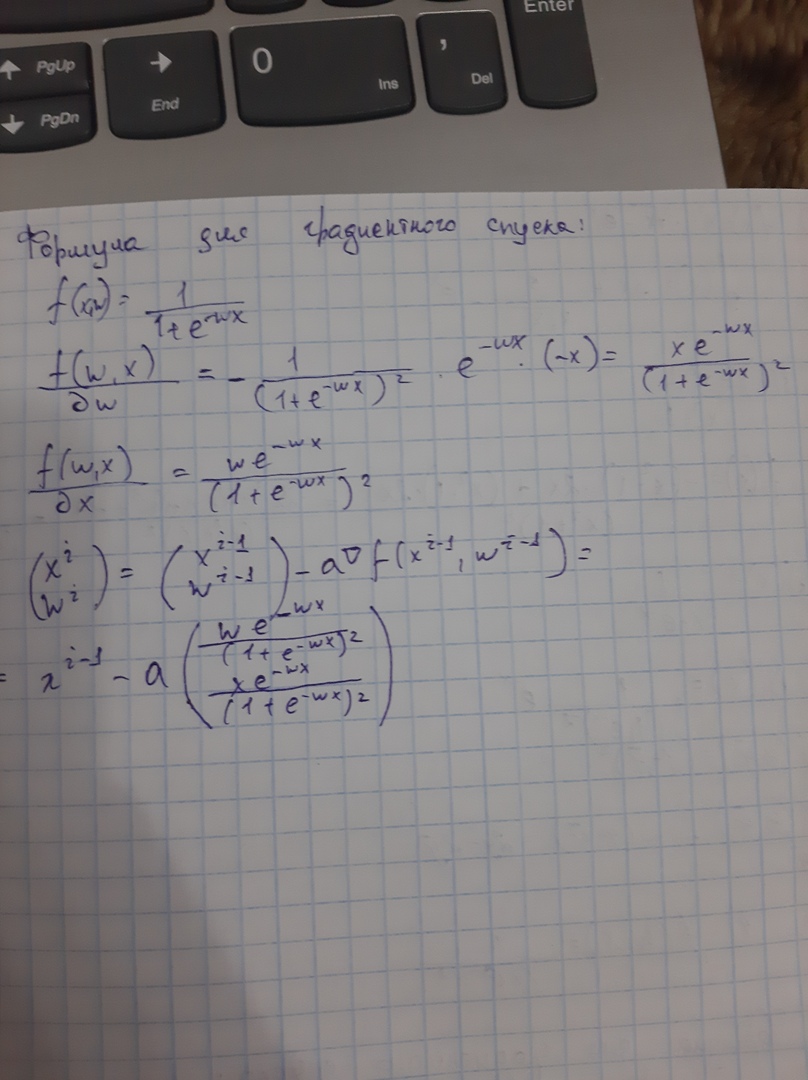 Enter
↑ PgUp
→
End
0
Ins
,
Del
↓ PgDn
Формула для градиентного спуска:
f(x,w) = 1 / (1+e^{-wx})
f(w,x) / ∂w = - 1 / (1+e^{-wx})^2 · e^{-wx} · (-x) = x e^{-wx} / (1+e^{-wx})^2
f(w,x) / ∂x = w e^{-wx} / (1+e^{-wx})^2
(x^i w^i) = (x^{i-1} w^{i-1}) - a∇f(x^{i-1}, w^{i-1}) =
= x^{i-1} - a (w e^{-wx} / (1+e^{-wx})^2 x e^{-wx} / (1+e^{-wx})^2)